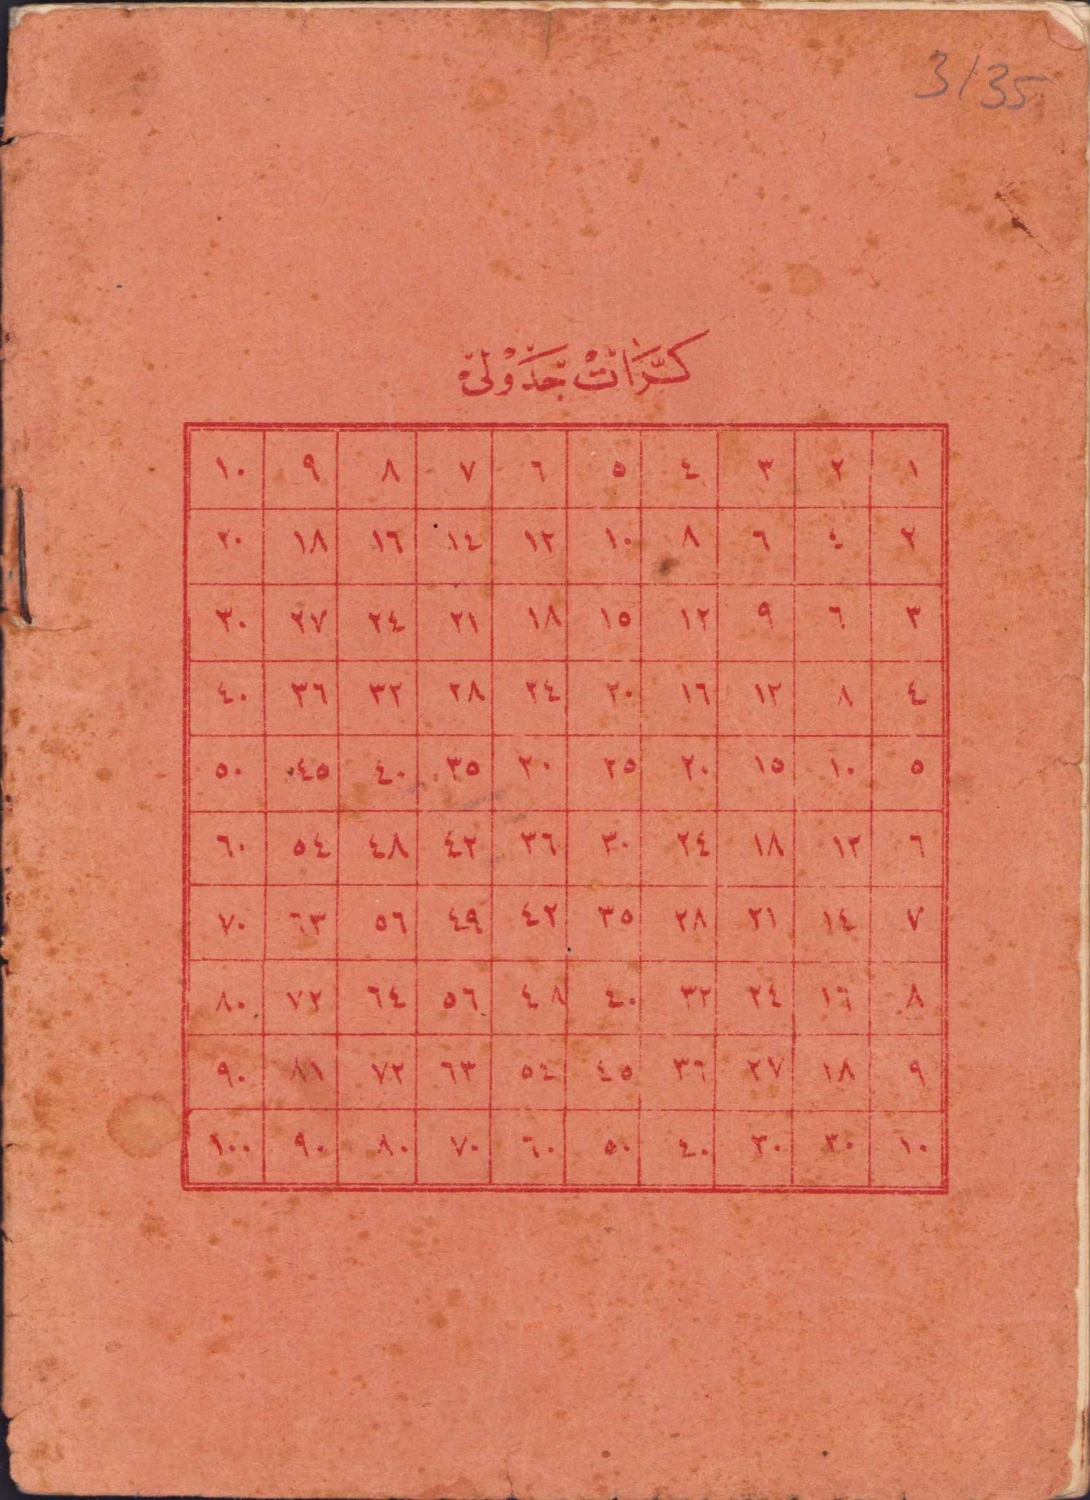 3135
كرّات جدولى
١ ٢ ٣ ٤ ٥ ٦ ٧ ٨ ٩ ١٠
٢ ٤ ٦ ٨ ١٠ ١٢ ١٤ ١٦ ١٨ ٢٠
٣ ٦ ٩ ١٢ ١٥ ١٨ ٢١ ٢٤ ٢٧ ٣٠
٤ ٨ ١٢ ١٦ ٢٠ ٢٤ ٢٨ ٣٢ ٣٦ ٤٠
٥ ١٠ ١٥ ٢٠ ٢٥ ٣٠ ٣٥ ٤٠ ٤٥ ٥٠
٦ ١٢ ١٨ ٢٤ ٣٠ ٣٦ ٤٢ ٤٨ ٥٤ ٦٠
٧ ١٤ ٢١ ٢٨ ٣٥ ٤٢ ٤٩ ٥٦ ٦٣ ٧٠
٨ ١٦ ٢٤ ٣٢ ٤٠ ٤٨ ٥٦ ٦٤ ٧٢ ٨٠
٩ ١٨ ٢٧ ٣٦ ٤٥ ٥٤ ٦٣ ٧٢ ٨١ ٩٠
١٠ ٢٠ ٣٠ ٤٠ ٥٠ ٦٠ ٧٠ ٨٠ ٩٠ ١٠٠